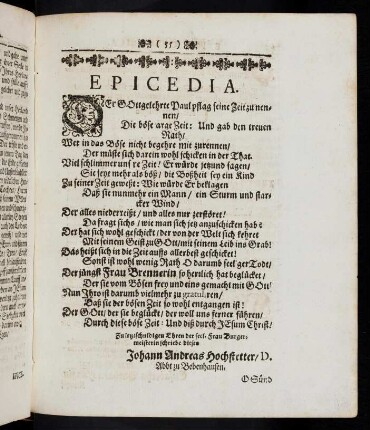 ( 55 )
EPICEDIA.
DEr GOttgelehrte Paul pflag seine Zeit zu nen-
nen/
Die böse arge Zeit: Und gab den treuen
Rath/
Wer in das Böse nicht begehre mit zurennen/
Der müste sich darein wohl schicken in der That.
Viel schlimmer uns're Zeit! Er würde jetzund sagen/
Sie seye mehr als böß/ die Boßheit sey ein Kind
Zu seiner Zeit geweßt: Wie würde Er beklagen
Daß sie nunmehr ein Mann/ ein Sturm und star-
cker Wind/
Der alles niederreißt/ und alles nur zerstöret!
Da fragt sichs/ wie man sich jetz anzuschicken hab?
Der hat sich wohl geschickt/ der von der Welt sich kehret
Mit seinem Geist zu GOtt/ mit seinem Leib ins Grab!
Das heißt sich in die Zeit aufs allerbest geschicket!
Sonst ist wohl wenig Rath. O darumb seel'ger Todt/
Der jüngst Frau Brennerin so herrlich hat beglücket/
Der sie vom Bösen frey und eins gemacht mit GOtt/
Nun Ihro ist darumb vielmehr zu gratuliren/
Daß sie der bösen Zeit so wohl entgangen ist:
Der GOtt/ der sie beglückt/ der woll uns ferner führen/
Durch diese böse Zeit: Und diß durch JEsum Christ!
Zu letzschuldigen Ehren der seel. Frau Burger-
meisterin schriebe dieses
Johann Andreas Hochstetter/ D.
Abbt zu Bebenhausen.
O Sünd